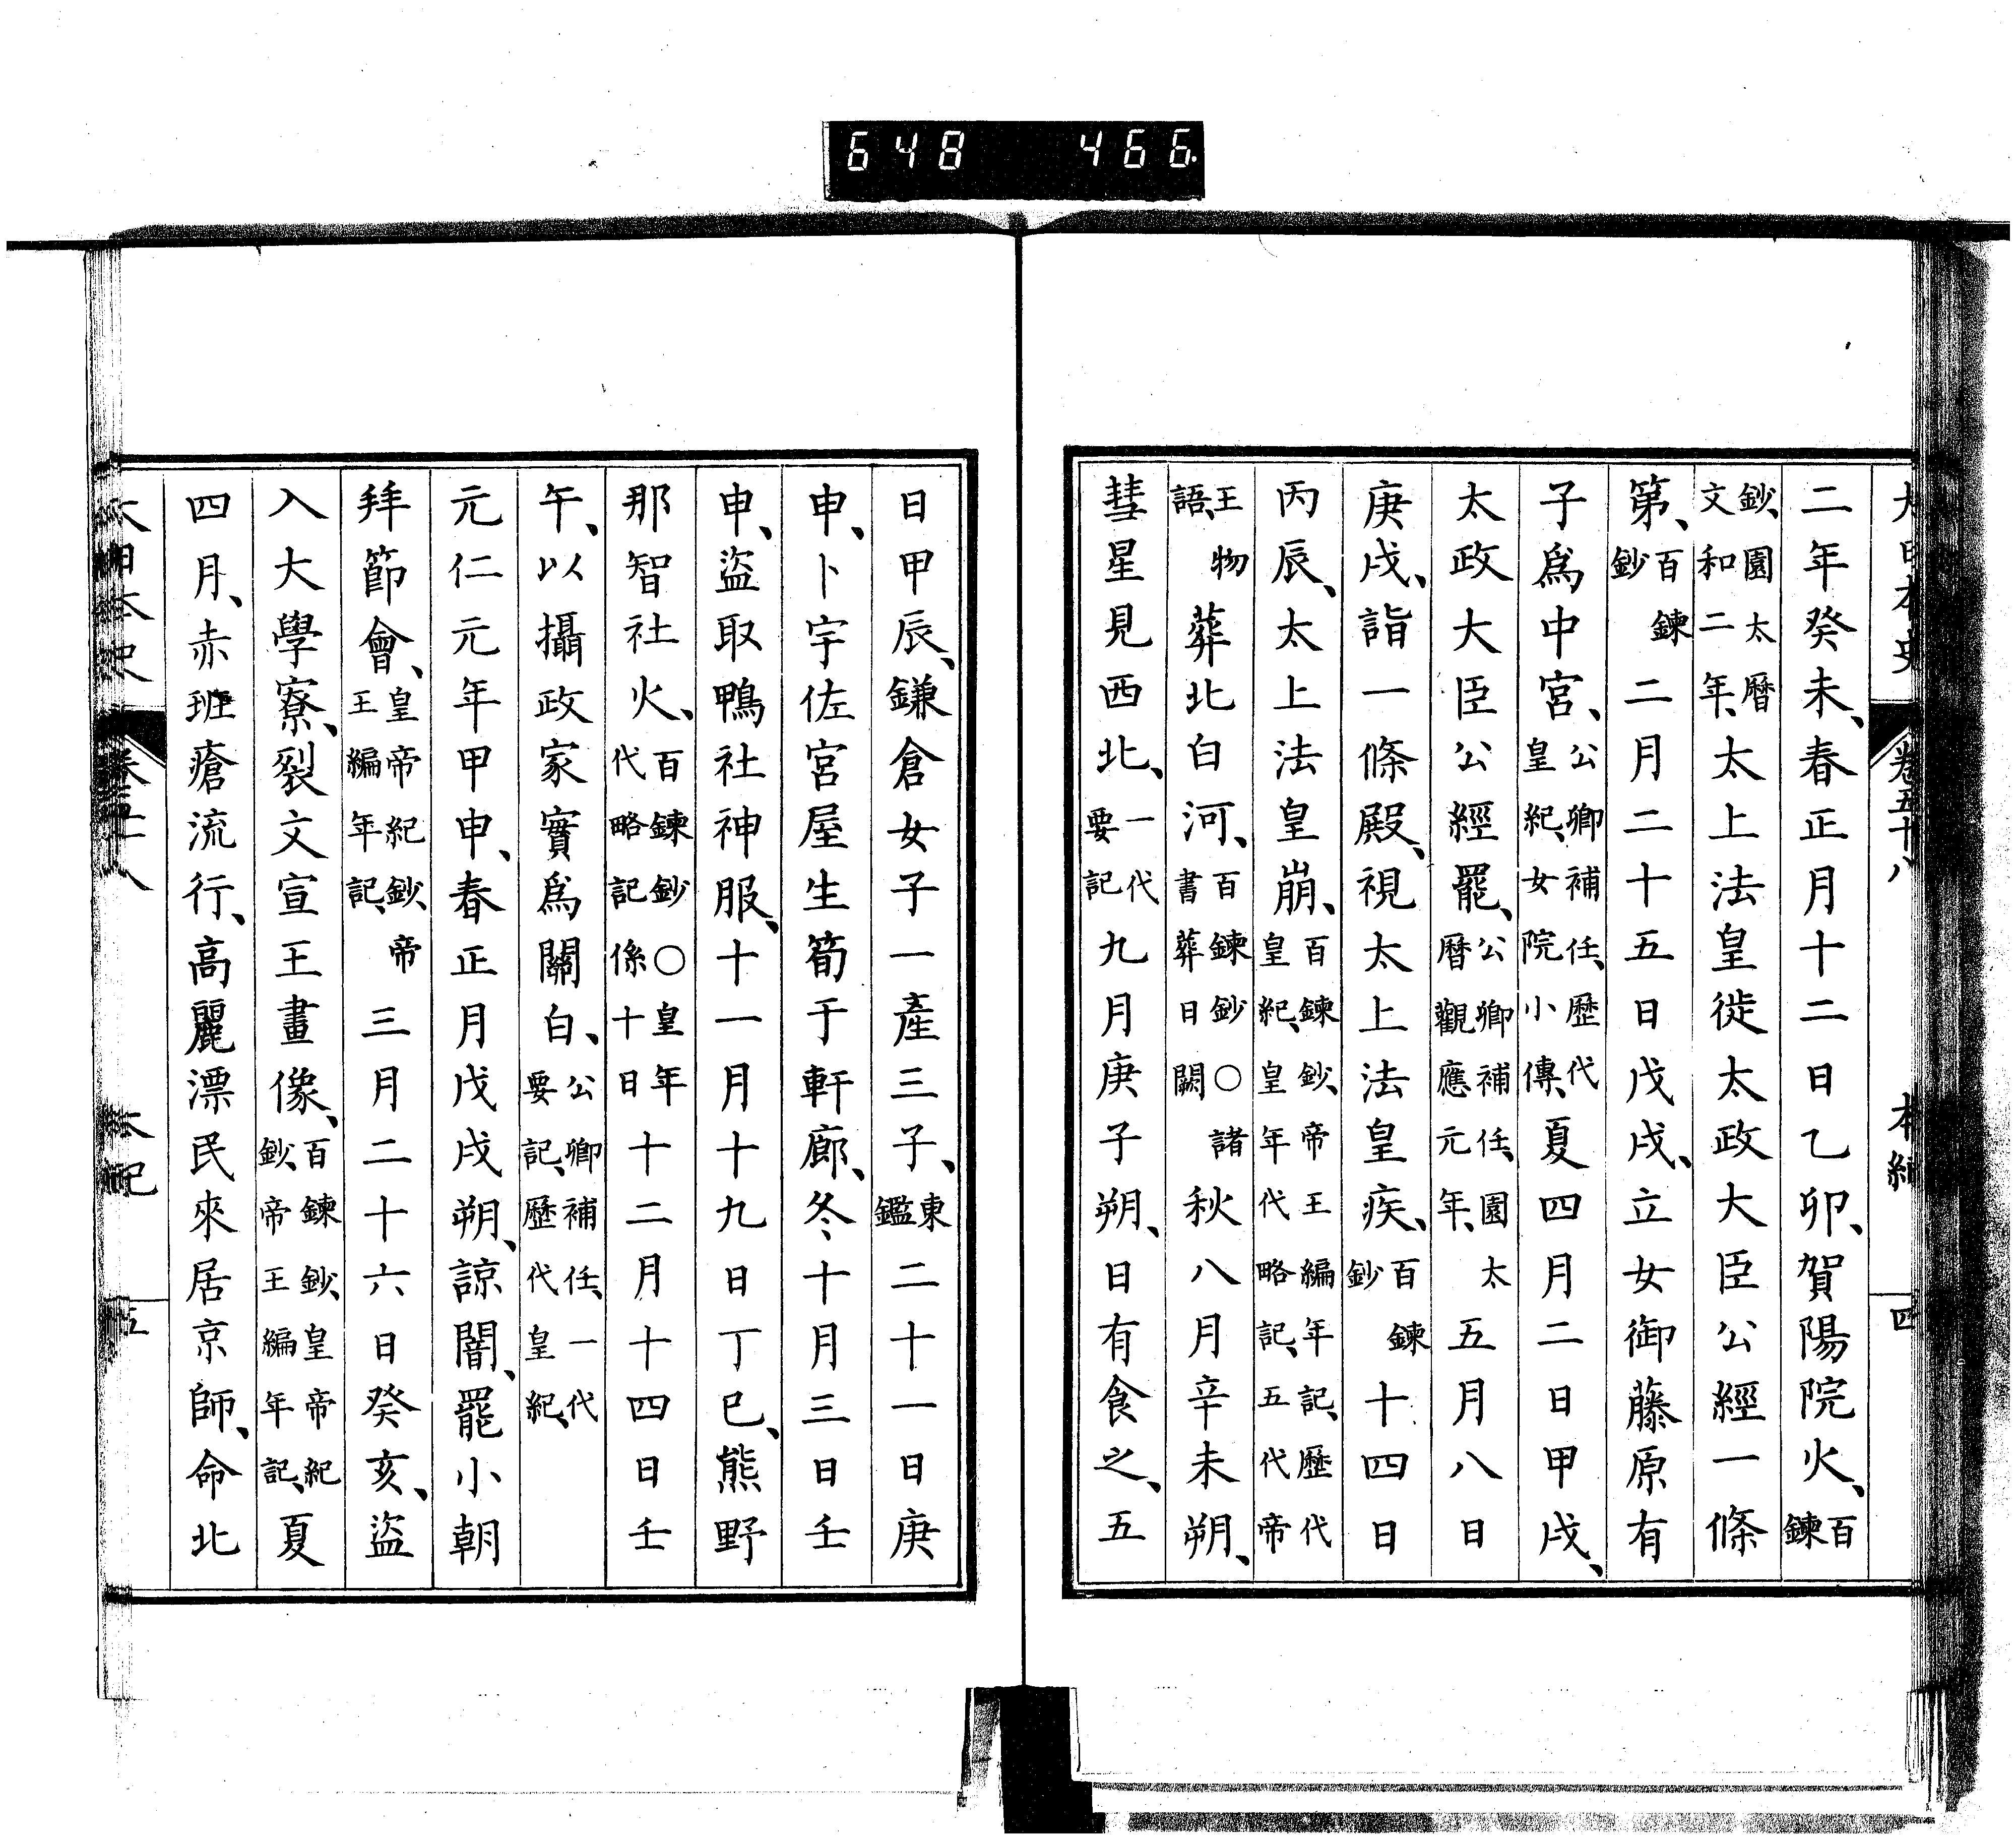 648 466
大日本史 卷五十八 本紀 四
二年癸未、春正月十二日乙卯、賀陽院火、百鍊
鈔、園太曆文和二年、太上法皇徙太政大臣公經一條
第、百鍊鈔二月二十五日戊戌、立女御藤原有
子爲中宮、公卿補任、歷代皇紀、女院小傳、夏四月二日甲戌、
太政大臣公經罷、公卿補任、園太曆觀應元年、五月八日
庚戌、詣一條殿、視太上法皇疾、百鍊鈔十四日
丙辰、太上法皇崩、百鍊鈔、帝王編年記、歷代皇紀、皇年代略記、五代帝
王物語、葬北白河、百鍊鈔○諸書葬日闕秋八月辛未朔、
彗星見西北、一代要記九月庚子朔、日有食之、五
日甲辰、鎌倉女子一產三子、東鑑二十一日庚
申、卜宇佐宮屋生筍于軒廊、冬十月三日壬
申、盜取鴨社神服、十一月十九日丁巳、熊野
那智社火、百鍊鈔○皇年代略記係十日十二月十四日壬
午、以攝政家實爲關白、公卿補任、一代要記、歷代皇紀、
元仁元年甲申、春正月戊戌朔、諒闇、罷小朝
拜節會、皇帝紀鈔、帝王編年記、三月二十六日癸亥、盜
入大學寮、裂文宣王畫像、百鍊鈔、皇帝紀鈔、帝王編年記、夏
四月、赤班瘡流行、高麗漂民來居京師、命北
大日本史 卷五十八 本紀 五